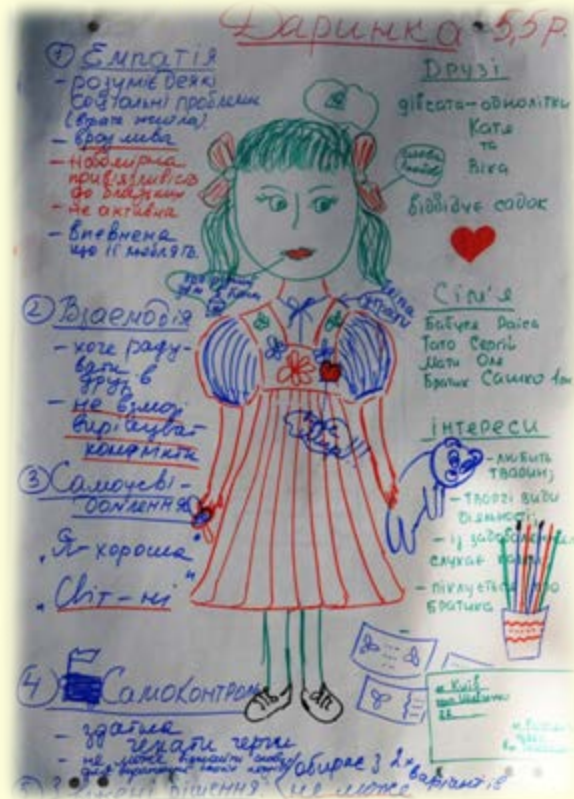 Даринка 5,5 р.
① Емпатія
- розуміє деякі
соціальні проблеми
- вразлива
- надмірна
до близьких
- не активна
- впевнена
що її люблять.
② Взаємодія
- хоче раду-
вати
друзів
- не взмозі
вирішуват
конфлікти
③ Самоусві-
домлення
"Я- хороша"
"Світ - ні"
④ Самоконтроль
- здатна
чекати черги
- не може
обирає з 2х варіантів
рішення (не може
Друзі
дівчата-однолітки
Катя
та
Віка
відвідує садок
Сім'я
Бабуся Раїса
Тато Сергій
Мати Оля
Братик Сашко
інтереси
- любить
тварин;
- творчі види
діяльності;
- із задоволенням
слухає
- піклується про
братика
м Київ